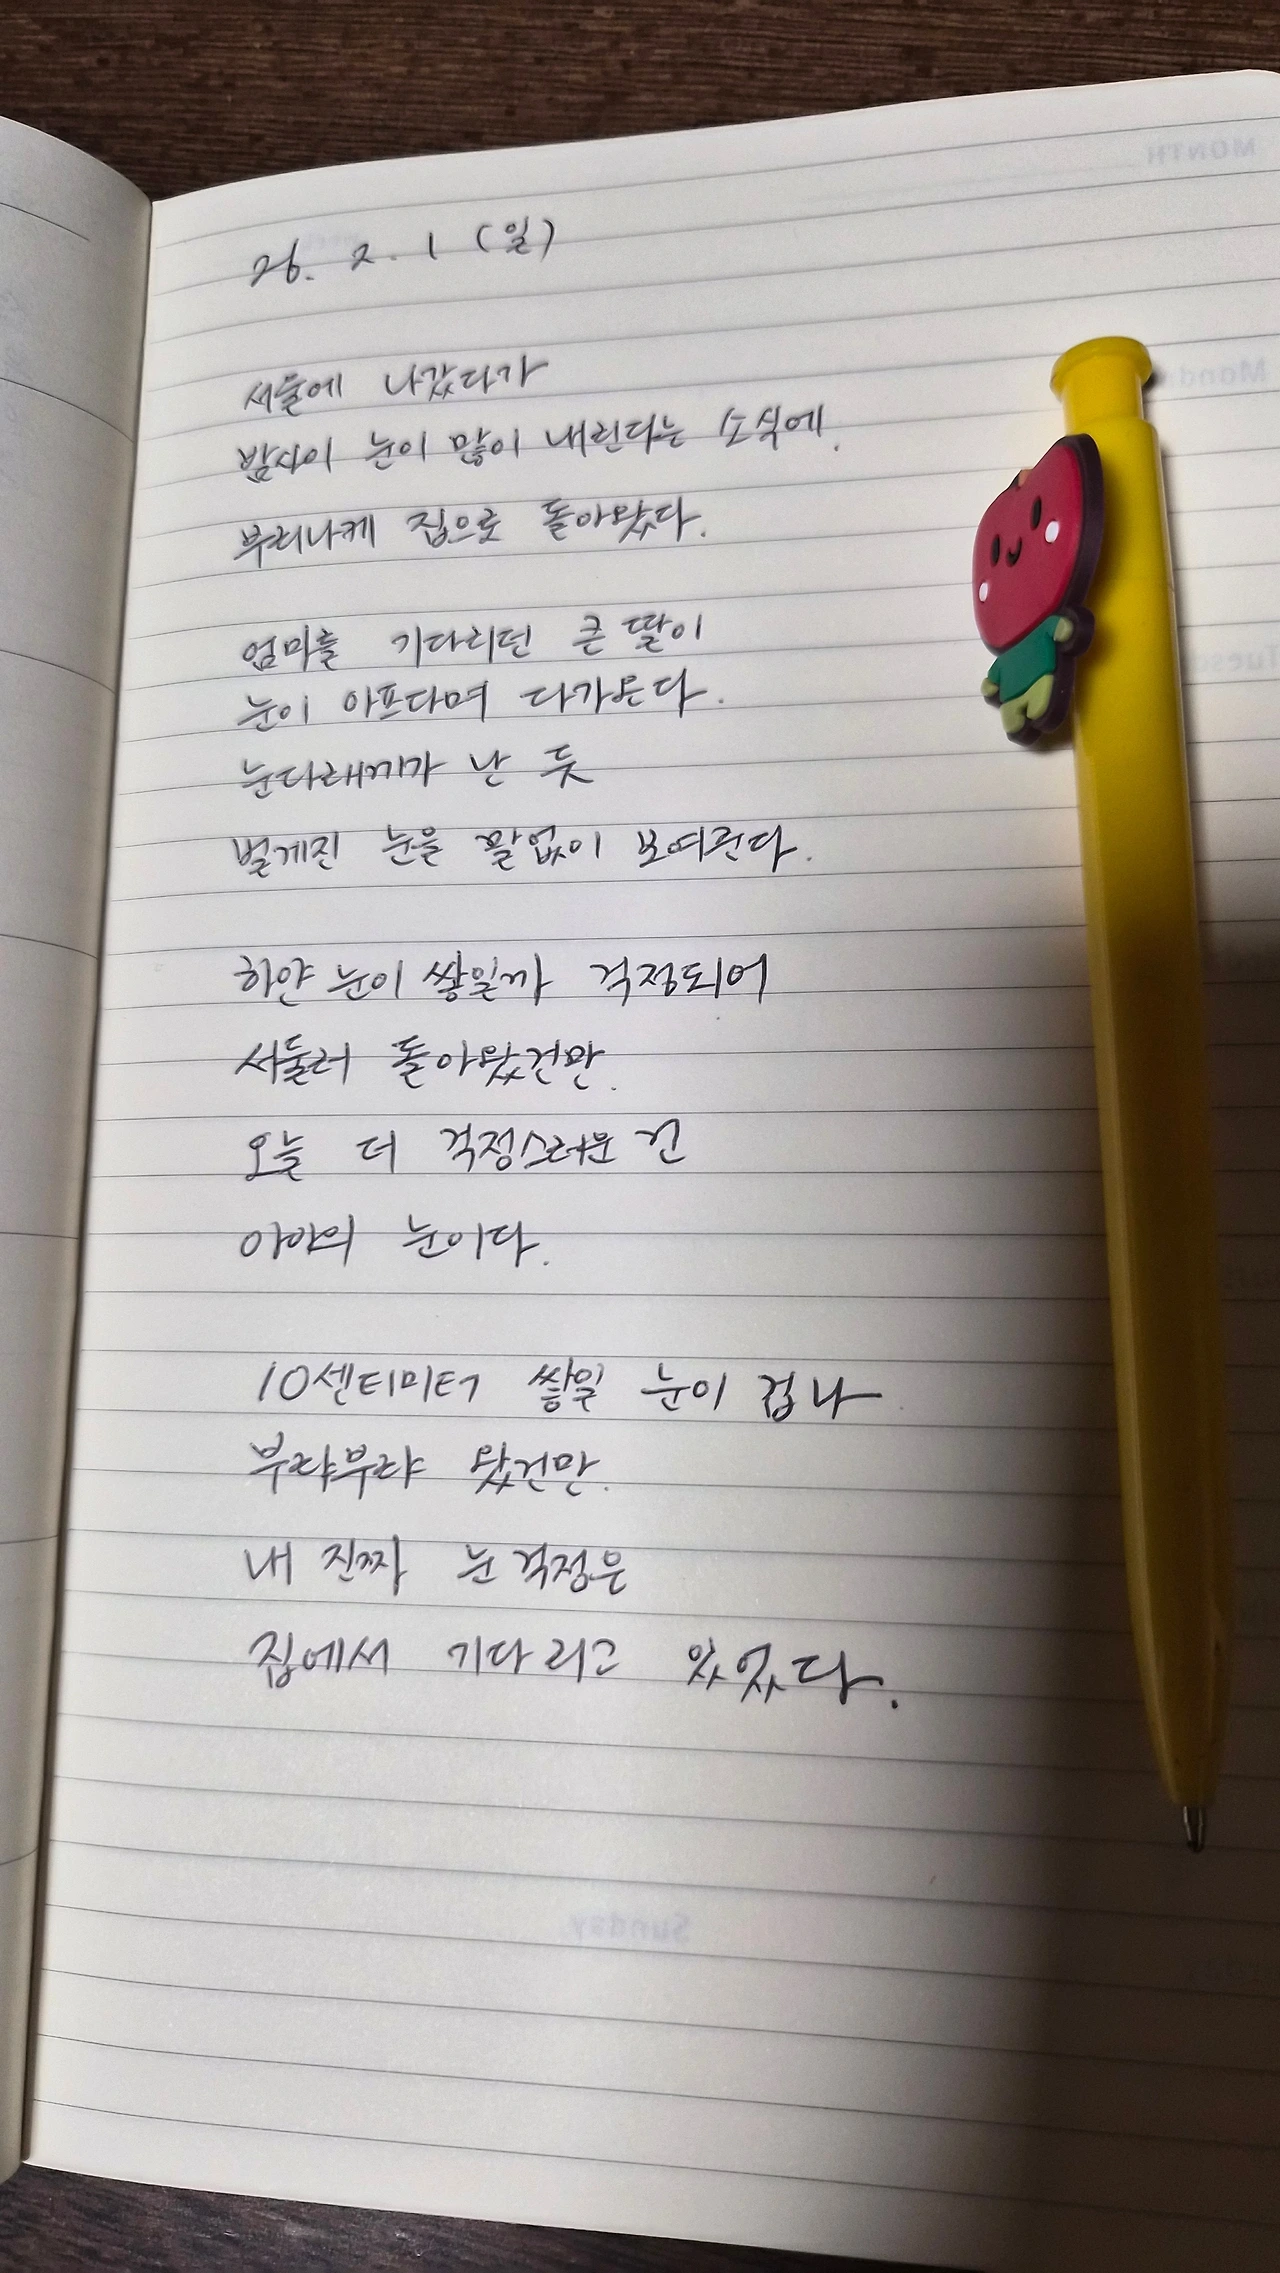 26. 2. 1 (일)
서울에 나갔다가
밤사이 눈이 많이 내린다는 소식에.
부리나케 집으로 돌아왔다.
엄마를 기다리던 큰 딸이
눈이 아프다며 다가온다.
눈다래끼가 난 듯
벌게진 눈을 말없이 보여준다.
하얀 눈이 쌓일까 걱정되어
서둘러 돌아왔건만.
오늘 더 걱정스러운 건
아이의 눈이다.
10센티미터 쌓일 눈이 겁나
부랴부랴 왔건만.
내 진짜 눈 걱정은
집에서 기다리고 있었다.
MONTH
Sunday